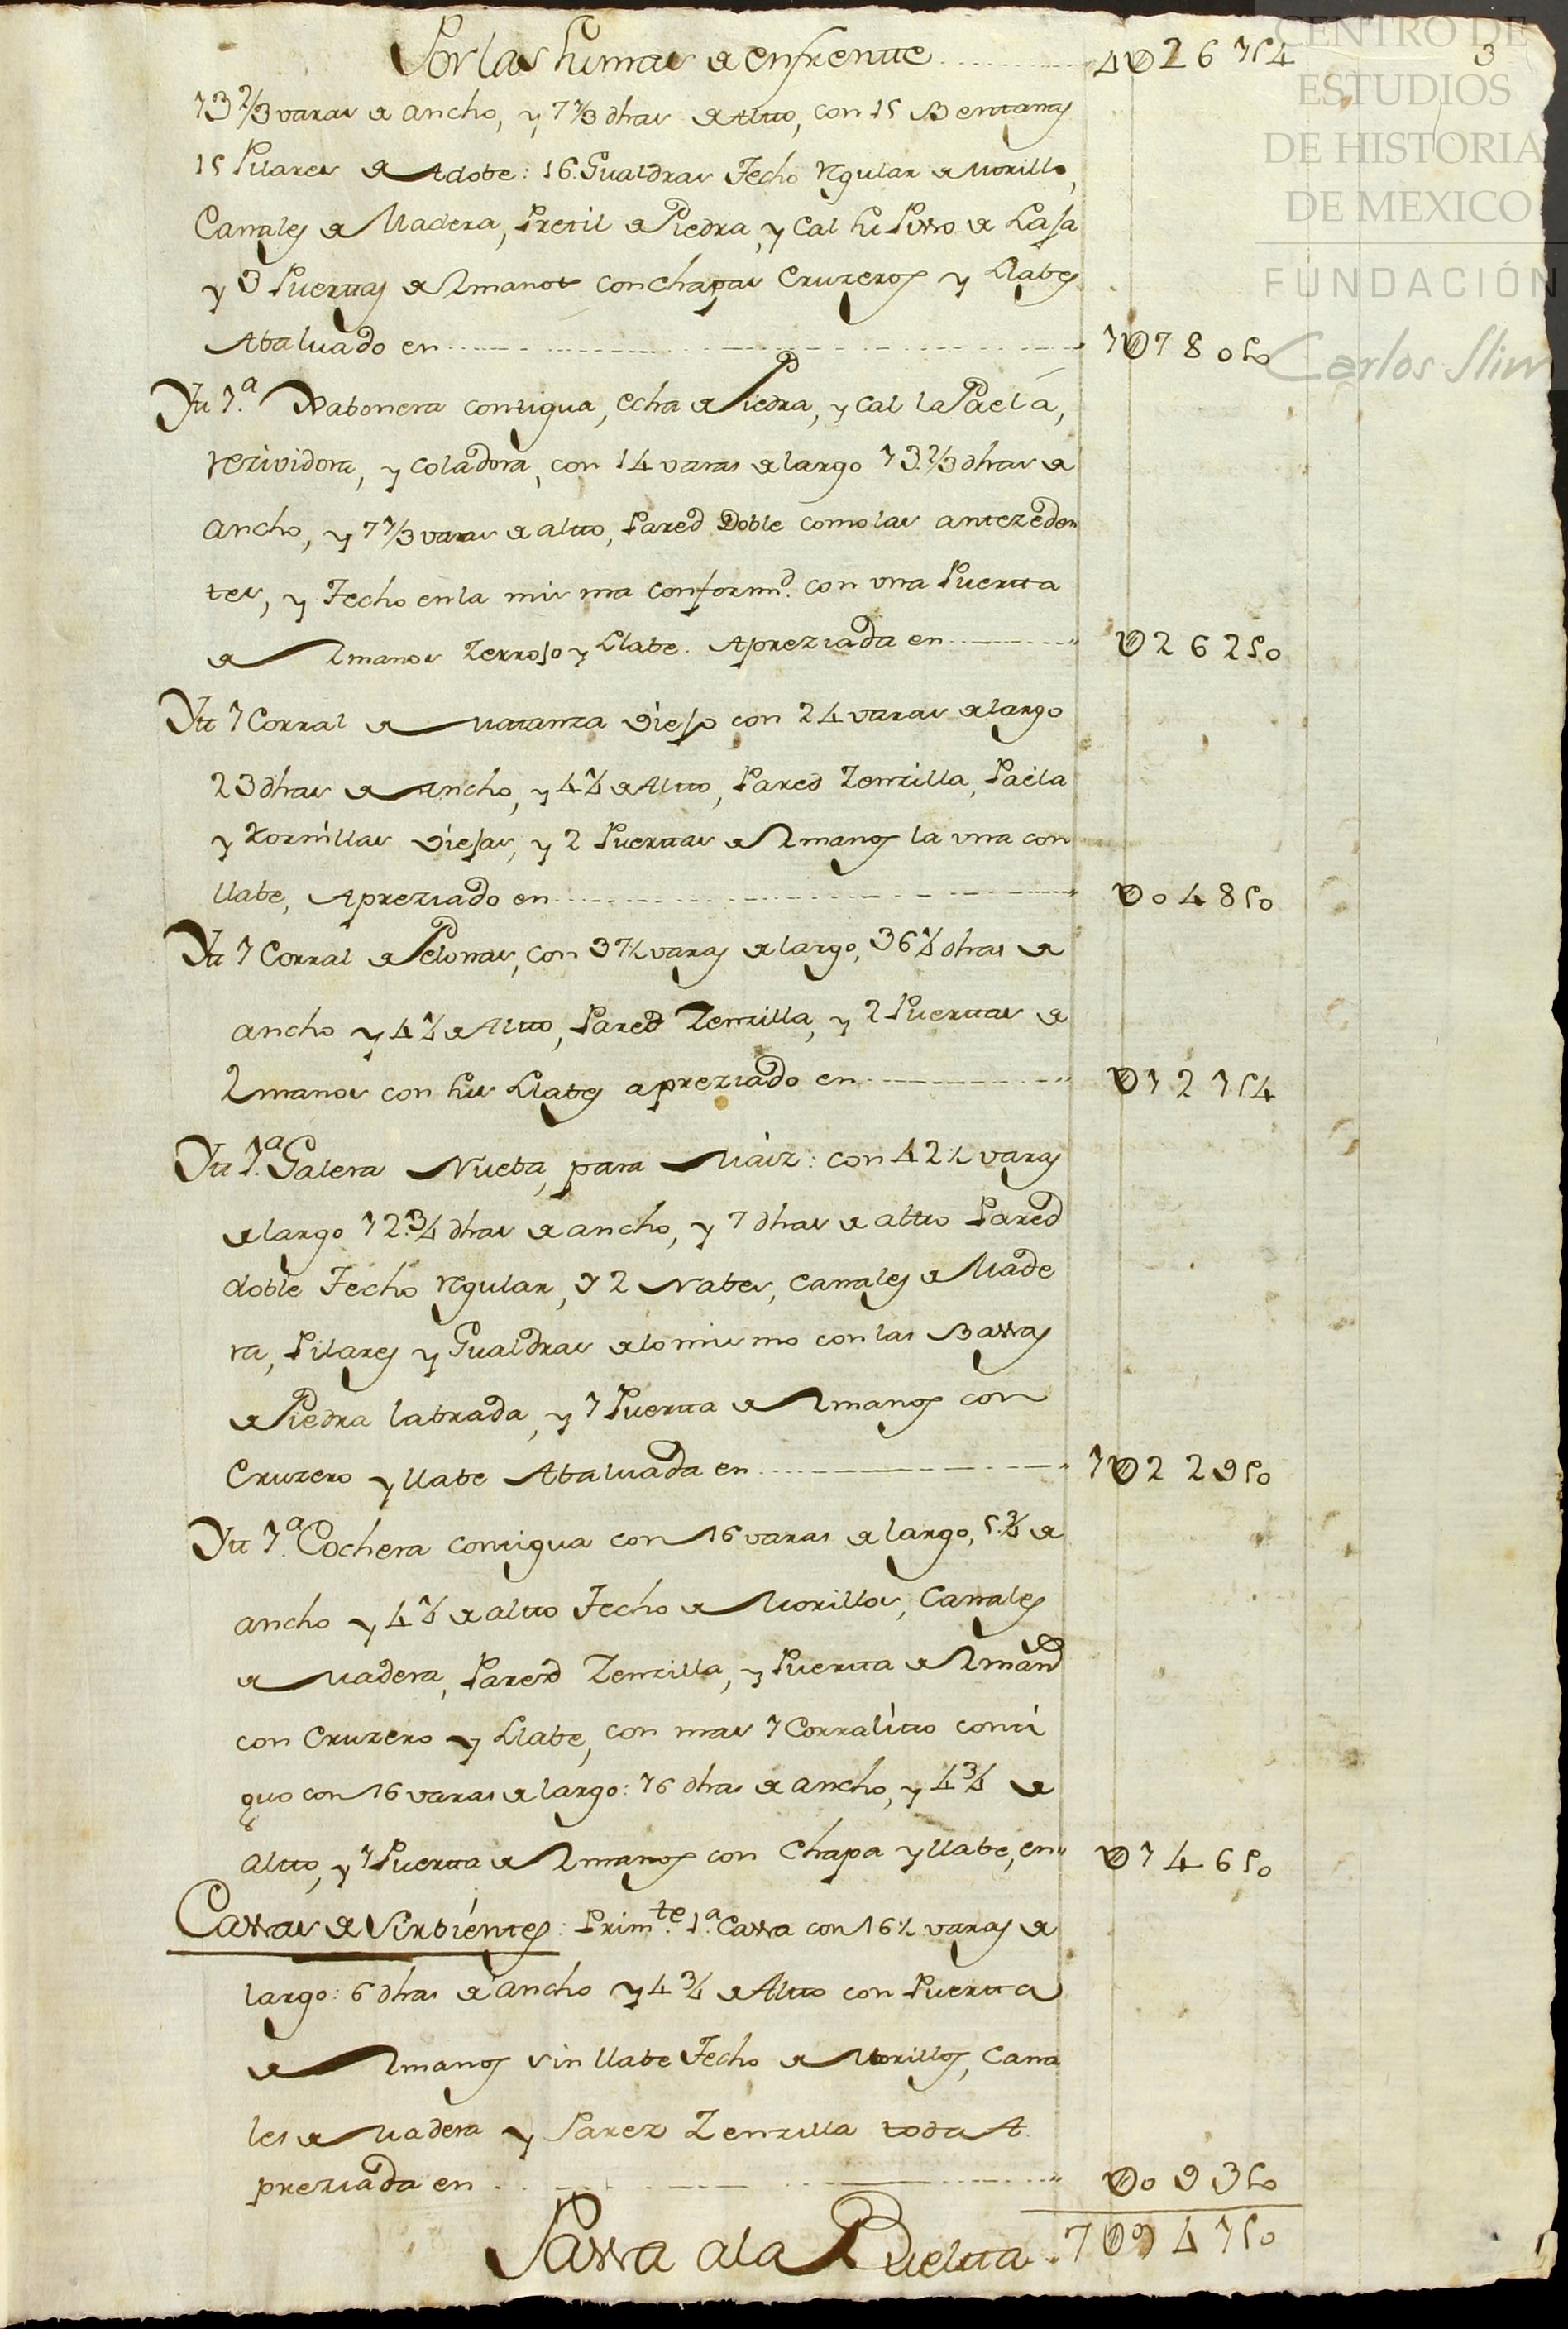 Por las sumas de enfrente 4U026 7/4 3
13 2/3 varas de ancho, y 7 1/3 dhas de Alto, con 15 Bentanas
15 Pilares de Adobe: 16. Gualdras Techo regular de Morillo,
Canales de Madera, Pretil de Piedra, y Cal su Pisso de Lasa
y 3 Puertas de 2 manos con chapas Cruzeros y Llabes
Abaluado en 1U078 0/0
Yt 1.ª Xabonera contigua, echa de Piedra, y Cal la Paela,
rezividora, y coladora, con 14 varas de largo 13 2/3 dhas de
ancho, y 7 1/3 varas de alto, Pared Doble como las antezeden
tes, y Techo en la misma conformd. con vna Puerta
de 2 manos Zerroso y Llabe. Apreziada en U262/0
Yt 1 Corral de Matanza Viejo con 24 varas de largo
23 dhas de Ancho, y 4 1/4 de Alto, Pared Zenzilla, Paela
y Hornillas Viejas, y 2 Puertas de 2 manos la vna con
llabe, Apreziado en U048/0
Yt 1 Corral de Pelonas, con 37 1/2 varas de largo, 36 1/4 dhas de
ancho y 4 1/4 de Alto, Pared Zenzilla, y 2 Puertas de
2 manos con sus Llabes apreziado en U121/4
Yt 1.ª Galera Nueba, para Maiz: con 42 1/2 varas
de largo 12 3/4 dhas de ancho, y 7 dhas de alto Pared
doble Techo regular, 32 Nabes, Canales de Made
ra, Pilares y Gualdras de lo mismo con las Bassas
de Piedra labrada, y 1 Puerta de 2 manos con
Cruzero y llabe Abaluada en 1U229/0
Yt 1.ª Cochera contigua con 16 varas de largo, 5 3/4 de
ancho y 4 1/4 de alto Techo de Morillos, Canales
de Madera, Pared Zenzilla, y Puerta de 2 manos
con Cruzero y Llabe, con mas 1 Corralito conti
guo con 16 varas de largo: 16 dhas de ancho, y 4 3/4 de
alto, y 1 Puerta de 2 manos con Chapa y llabe, en U146/0
Cassas de Sirbientes: Primte. 1.ª Cassa con 16 1/2 varas de
largo: 6 dhas de ancho y 4 3/4 de Alto con Puerta
de 2 manos sin llabe Techo de Morillos, Cana
les de Madera y Parez Zenzilla toda A
preziada en U093/0
Passa a la Buelta 7U0941/0
CENTRO DE
ESTUDIOS
DE HISTORIA
DE MEXICO
FUNDACIÓN
Carlos Slim